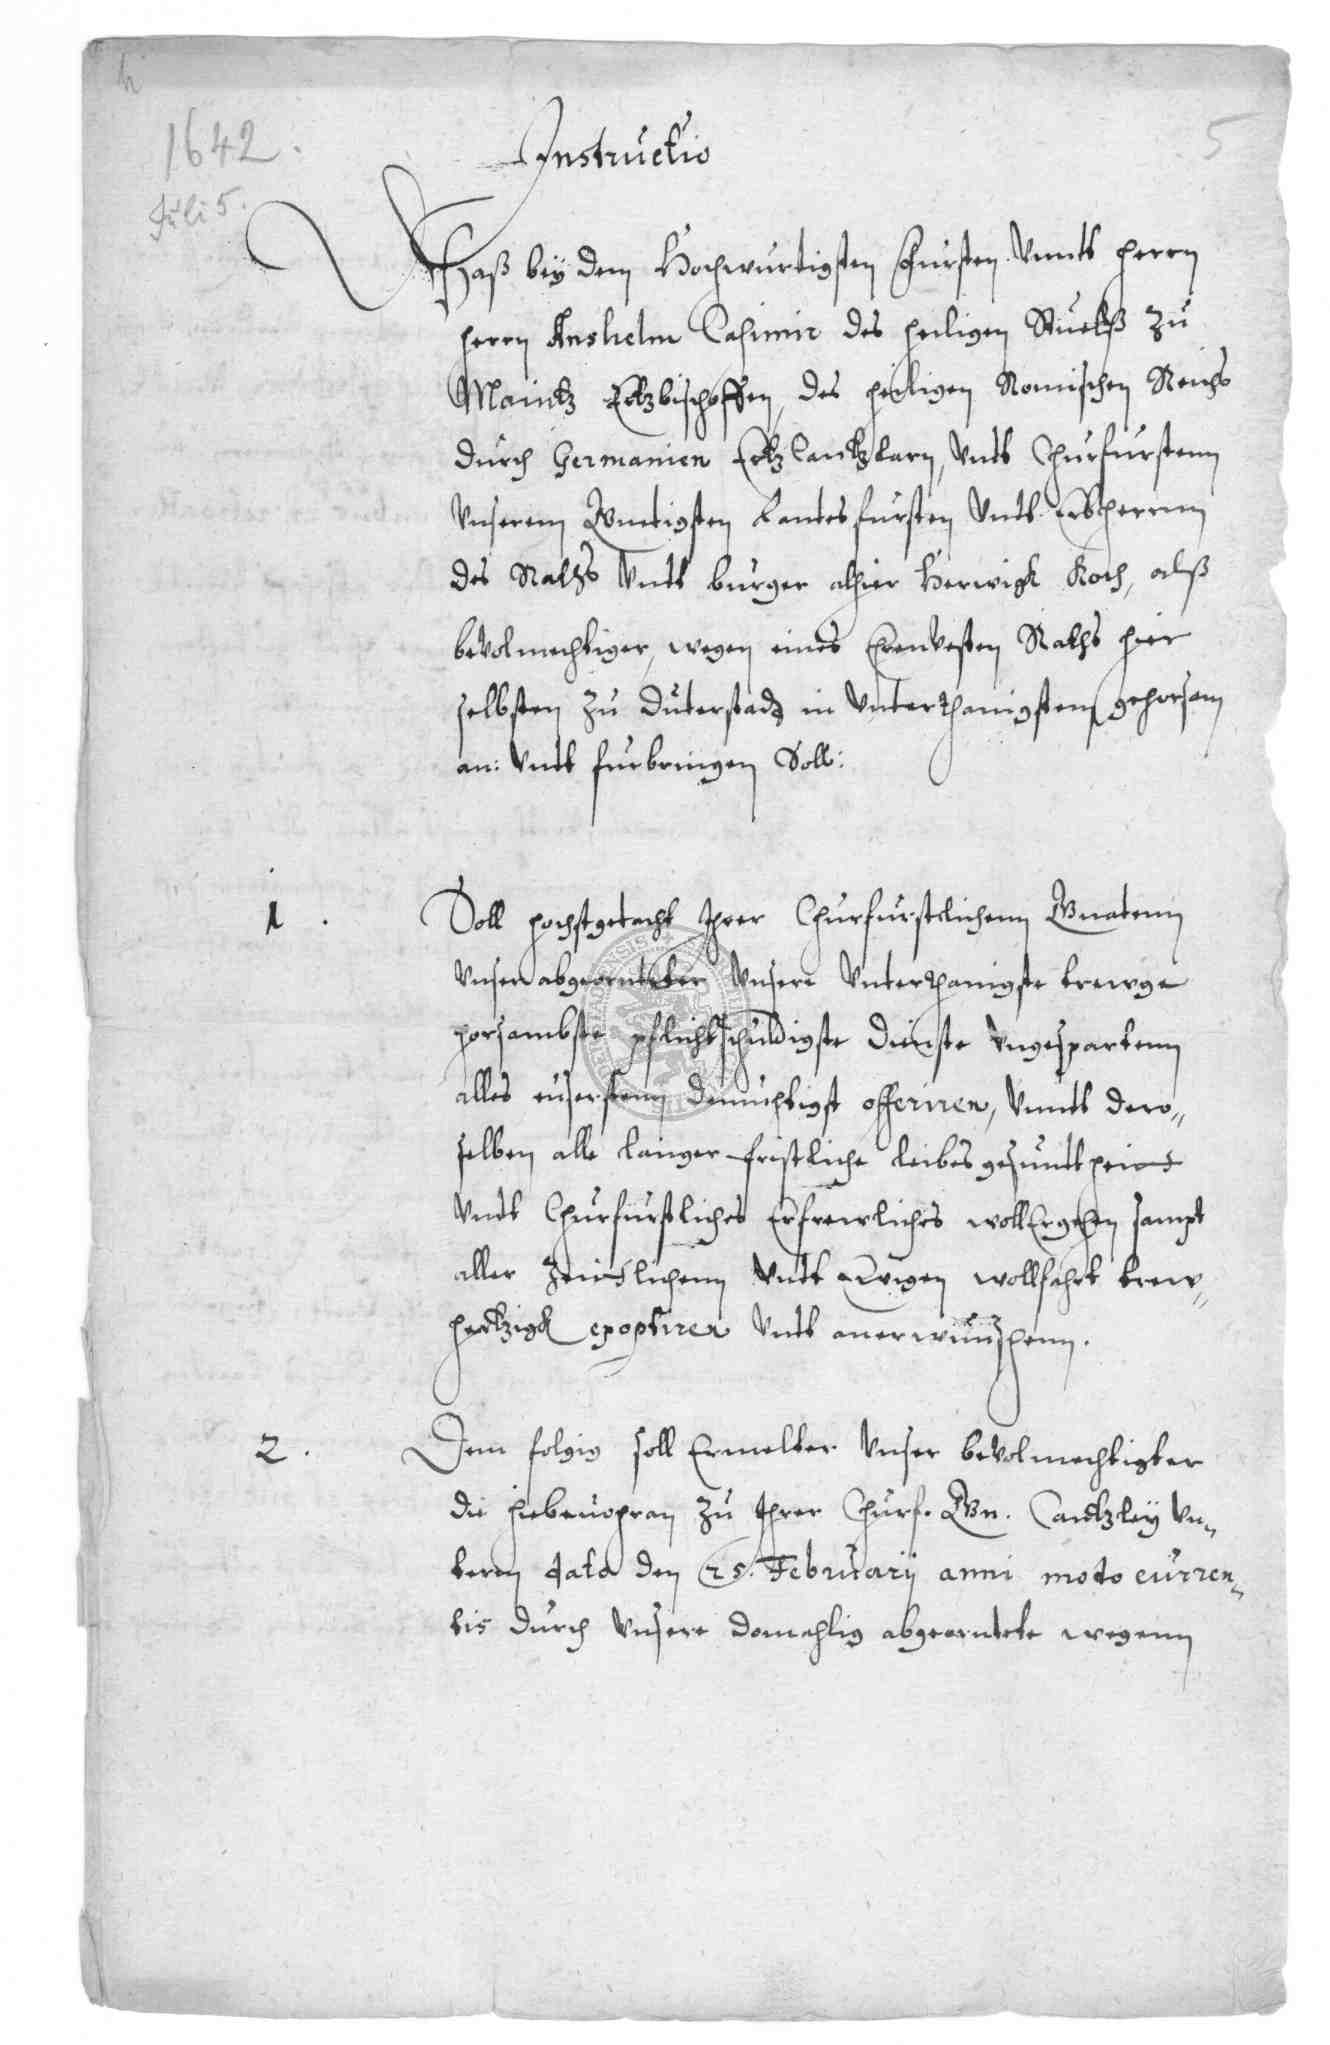 1642.
Juli 5.
5
Instructio
Waß bey dem Hochwurdigsten Fursten Vnndt Herrn
Herrn Anshelm Casimir des heiligen Stuelß zu
Maintz Ertzbischoffen, des heiligen Romischen Reichs
durch Germanien ErtzCantzlarn, Vndt Churfurstenn
Vnserem Gnedigsten Landesfursten Vndt Erbherrnn
des Raths Vndt burger alhier Herwigk Koch, alß
bevolmechtiger, wegen eines Ehrenvesten Raths hier
selbsten zu Duterstadt in Vnterthanigstem gehorsam
an: Vndt furbringen Soll:
1.
Soll hochstgedacht Ihrer Churfurstlichenn Gnadenn
Vnser abgeordneter Vnsere Vnterthanigste trewge
horsambste pflichtschuldigste Dienste Vngespartenn
alles euserstenn demuhtigst offeriren, Vnndt dero„
selben alle langer fristliche leibes gesundtheit
Vndt Churfurstliches Erfrewliches wollErgehen sampt
aller Zeitlichenn Vndt Ewigen wollfahrt trew„
hertzigk exoptiren Vndt anerwunschenn.
2.
Dem folgig soll Ermelter Vnser bevolmechtigter
die hiebeuohran zu Ihrer Churf. Gn. Cantzley Vn„
term dato den 25. Februarij anni modo curren„
tis durch Vnsere domahlig abgeordnete wegenn